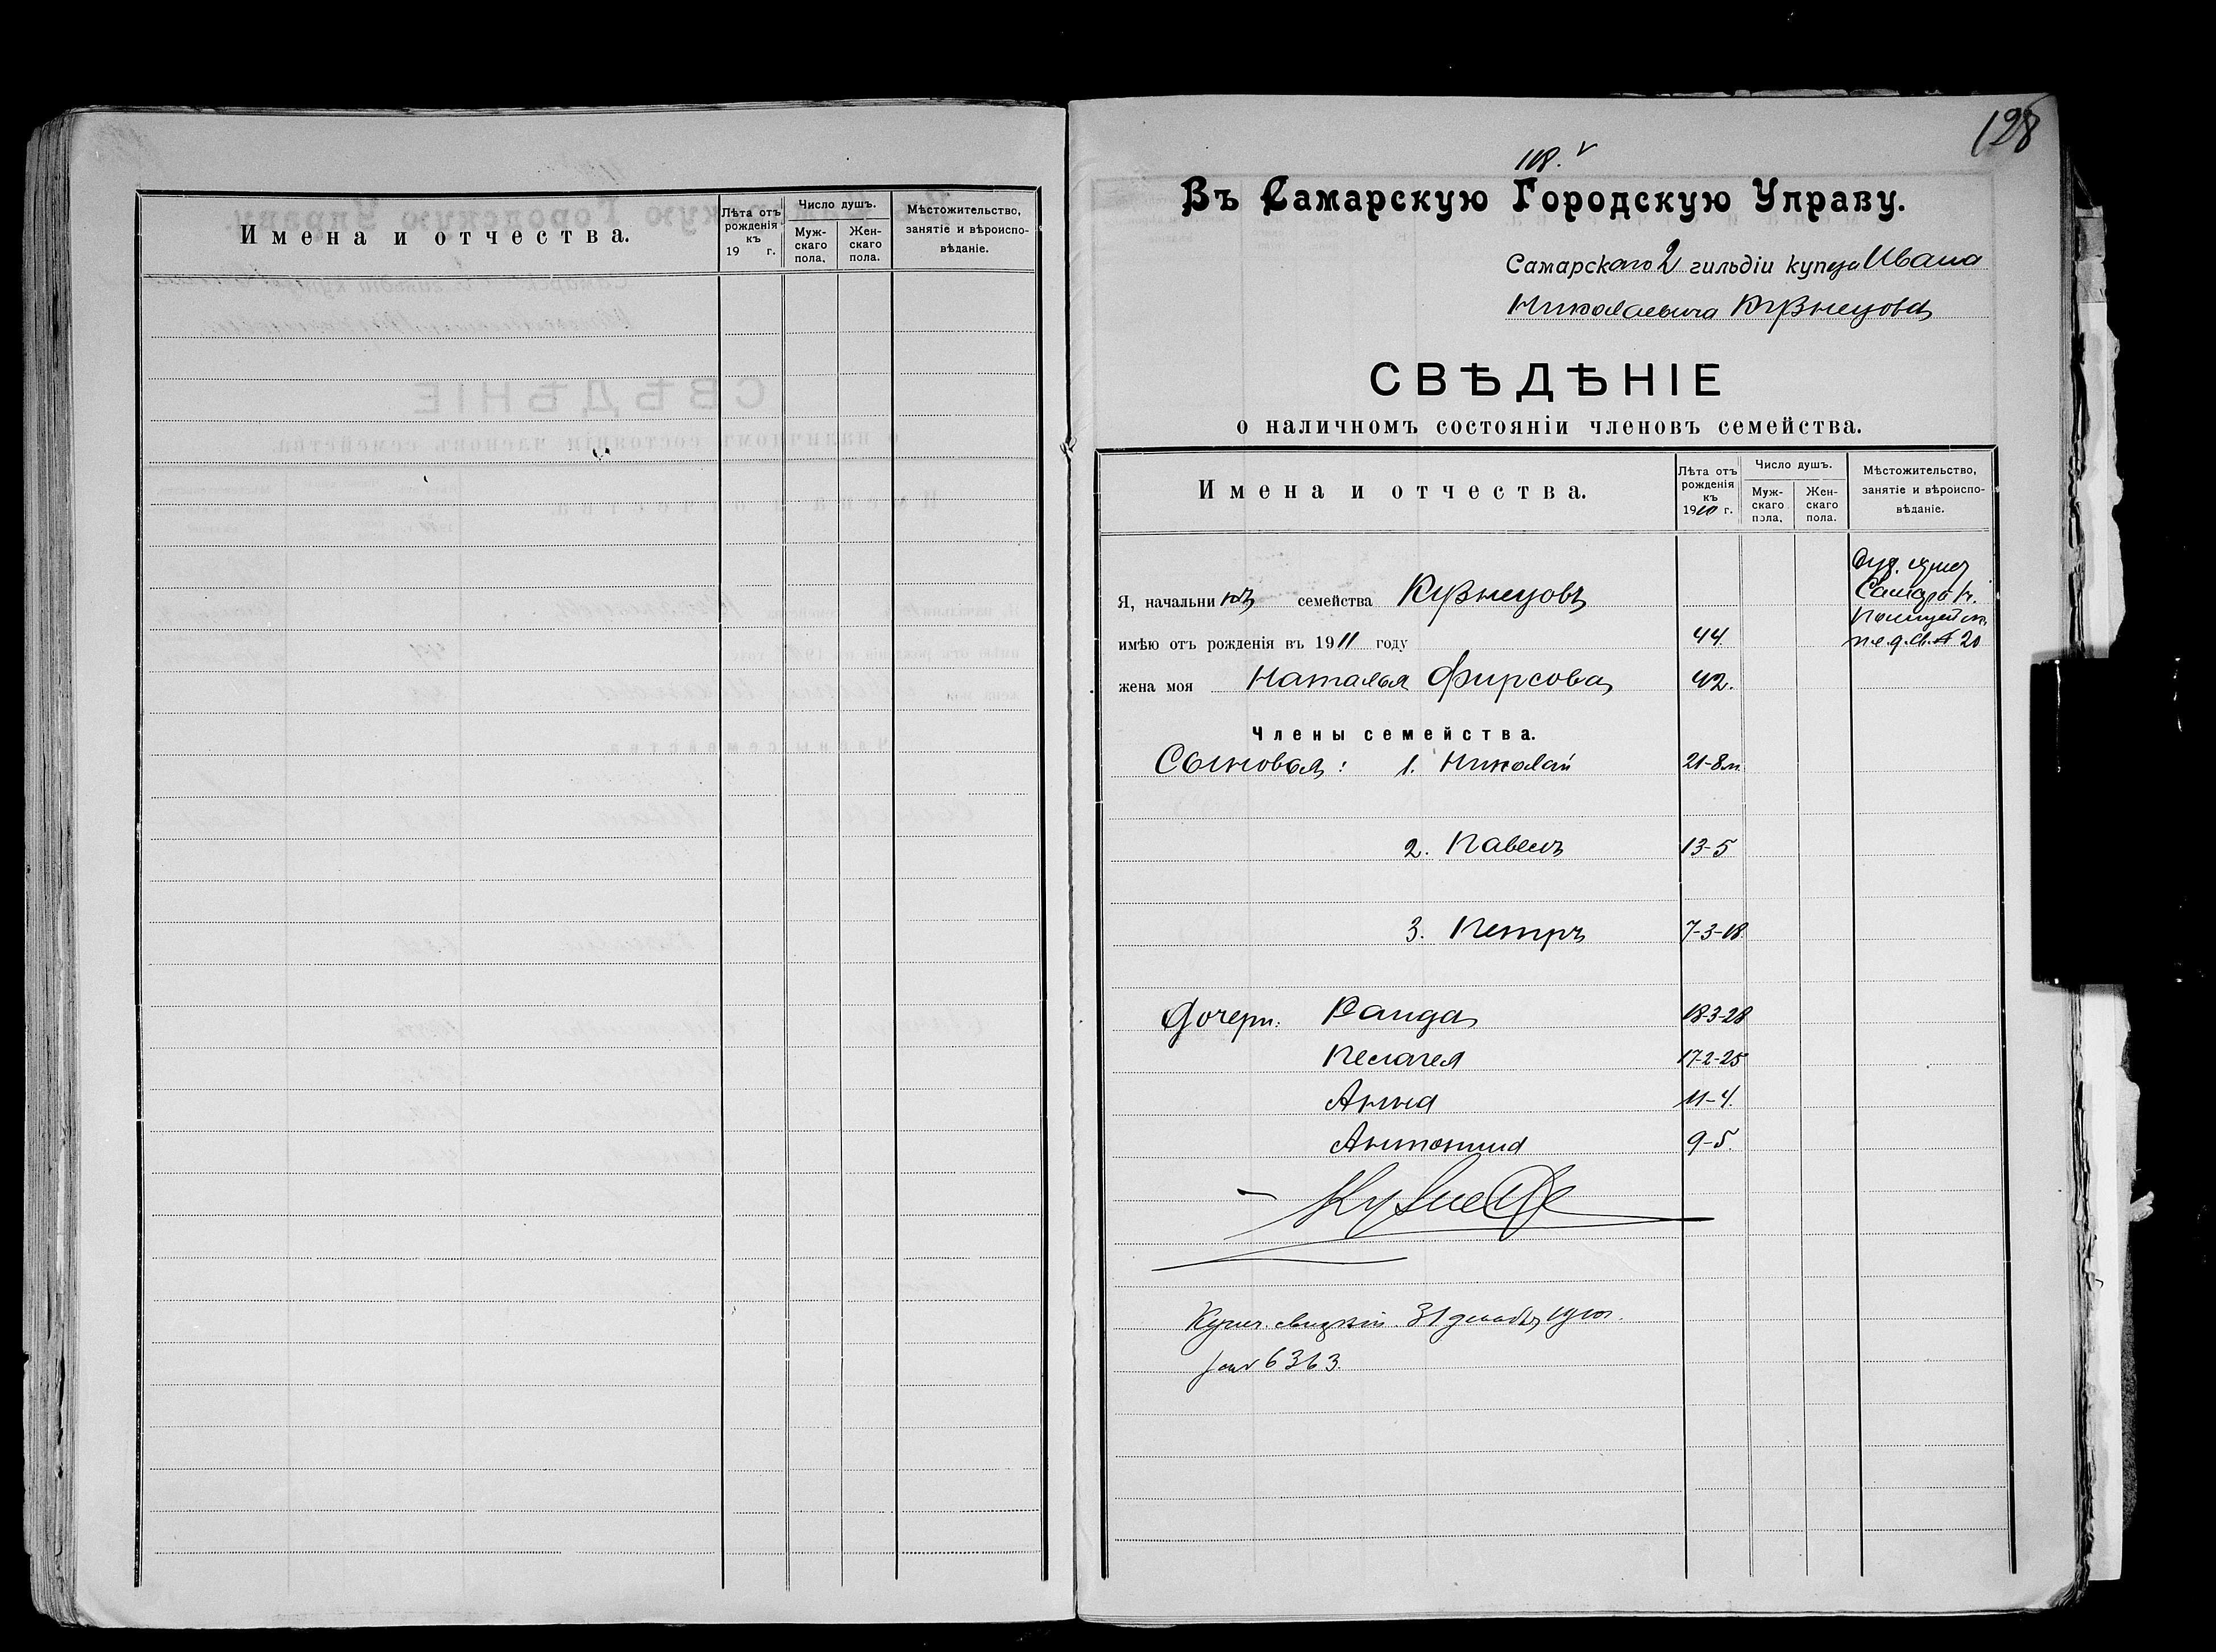 Имена и отчества.
Лѣта отъ рожденія къ 19 г.
Число душъ.
Мужскаго пола.
Женскаго пола.
Мѣстожительство, занятіе и вѣроисповѣданіе.
128
118. v
Въ Самарскую Городскую Управу.
Самарскаго 2 гильдіи купца Ивана
Николаевича Кузнецова
СВѢДѢНІЕ
о наличномъ состояніи членовъ семейства.
Имена и отчества.
Лѣта отъ рожденія къ 1910 г.
Число душъ.
Мужскаго пола.
Женскаго пола.
Мѣстожительство, занятіе и вѣроисповѣданіе.
Я, начальникъ семейства Кузнецовъ
имѣю отъ рожденія въ 1911 году 44
20
жена моя Наталья Фирсова 42.
Члены семейства.
Сыновья: 1. Николай 21-8м
2. Павелъ 13-5
3. Петръ 7-3-18
Дочери: Раида 18-3-28
Пелагея 17-2-25
Анна 11-4.
Антонина 9-5.
Купеч. 31 декабъ 1910г.
6363.